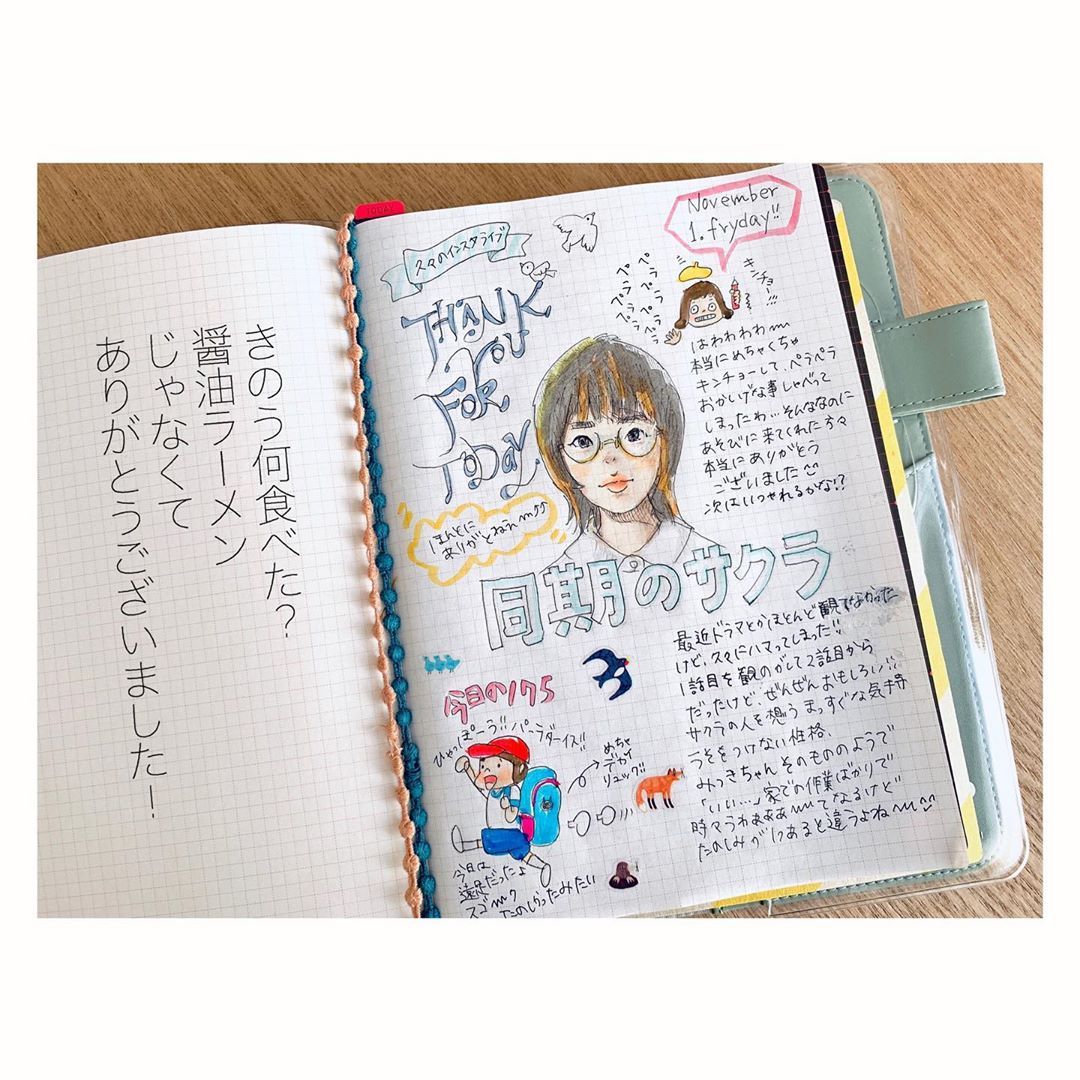 きのう何食べた?
醤油ラーメン
じゃなくて
ありがとうございました!
TODAY
久々のインスタライブ
THANK
YOU
FOR
TODAY
ほんとに
ありがとねぇ〜〜
November
1. fryday!!
ペラペラ
ペラペラ
ペラペラ
キンチョー!!!
はわわわわ〜
本当にめちゃくちゃ
キンチョーして、ペラペラ
おかしげな事しゃべって
しまったわ…そんななのに
あそびに来てくれた方々
本当にありがとう
ございました
次はいつやれるかな!?
同期のサクラ
最近ドラマとかほとんど観てなかった
けど、久々にハマってしまった!!
1話目を観のがして2話目から
だったけど、ぜんぜんおもしろい!!
サクラの人を想うまっすぐな気持
うそをつけない性格、
みっきちゃんそのもののようで
「いい…」家での作業ばかりで
時々うわぁああ〜てなるけど
たのしみが1つあると違うよね〜
今日の175
ひゃっほーう!! パーラダーイス!!
めちゃ
デカイ
リュック!!
今日は
遠足だったよ
スゴ〜ク
たのしかったみたい